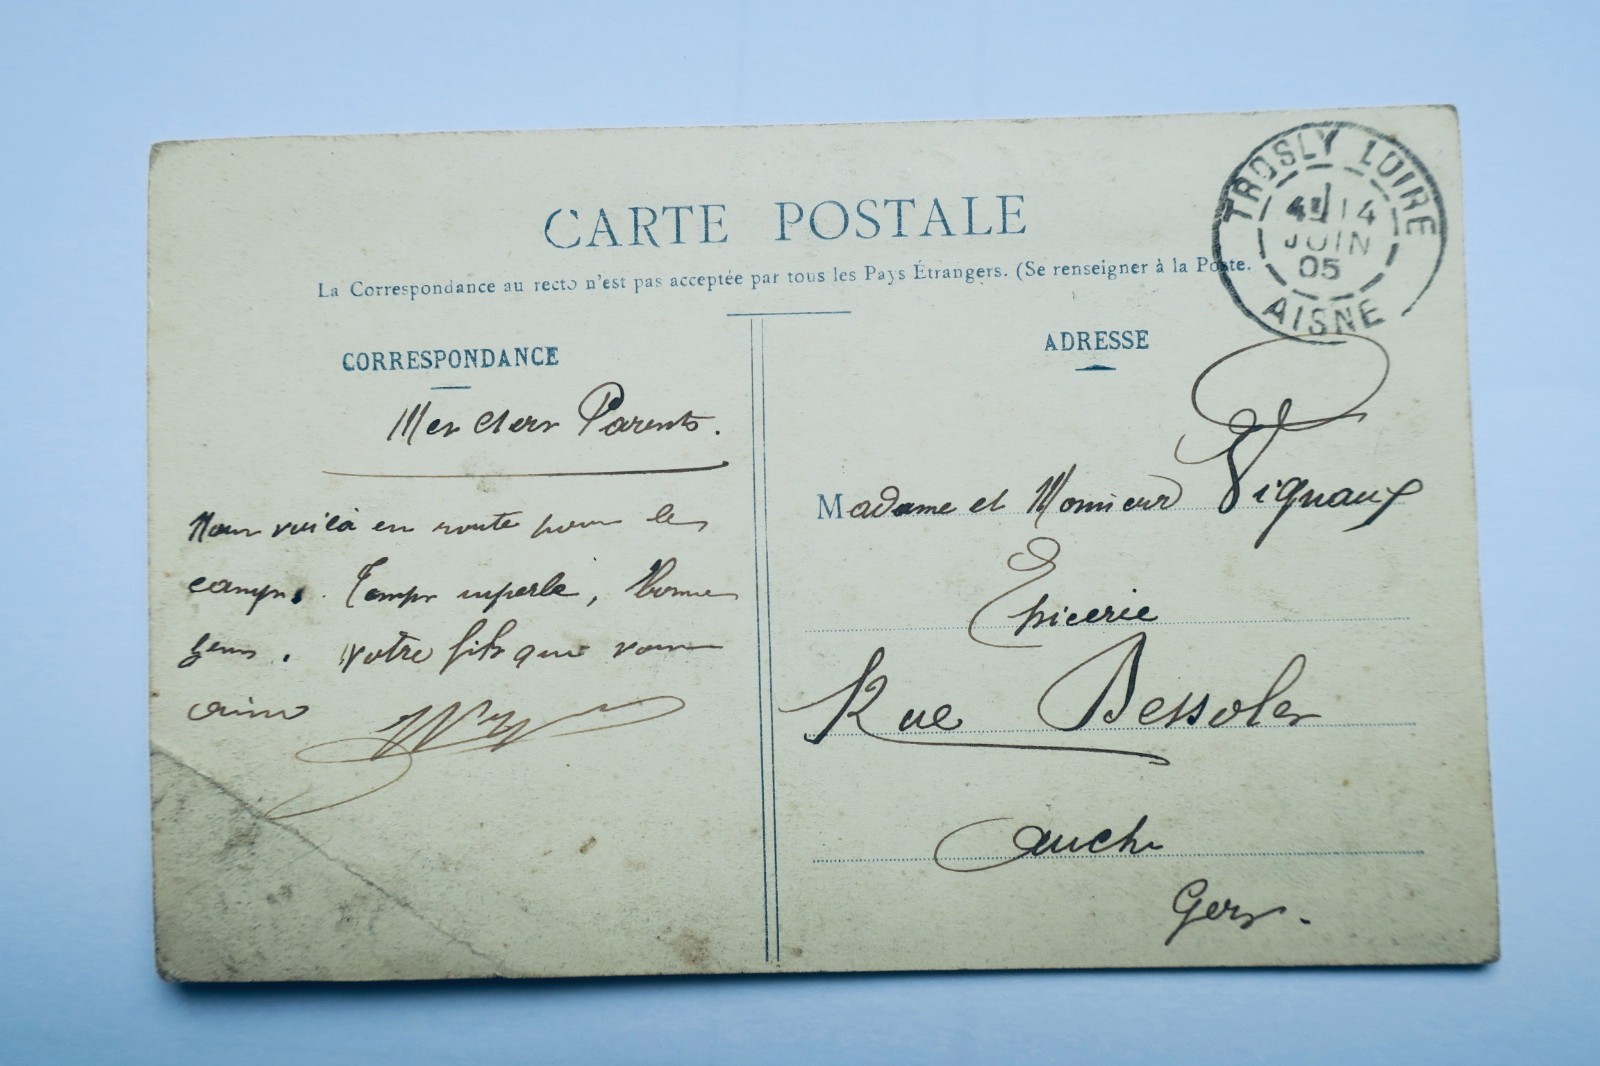 CARTE POSTALE
La Correspondance au recto n'est pas acceptée par tous les Pays Étrangers. (Se renseigner à la Poste.
TROSLY LOIRE
14
JUIN
05
AISNE
CORRESPONDANCE
Mes chers Parents.
Nous voilà en route pour le
camp. Temps superbe, Bonne
gens. Votre fils qui vous
aime
ADRESSE
Madame et Monsieur Vignaux
Epicerie
Rue Dessoles
Auch
Gers.